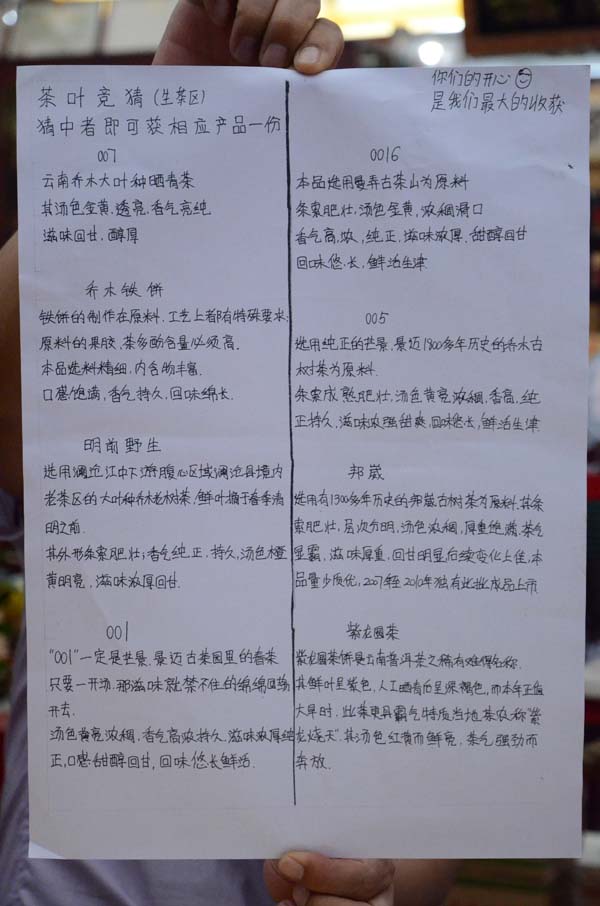 茶叶竞猜(生茶区)
猜中者即可获相应产品一份
007
云南乔木大叶种晒青茶
其汤色金黄,透亮,香气亮纯
滋味回甘,醇厚
乔木铁饼
铁饼的制作在原料,工艺上都有特殊要求;
原料的果胶,茶多酚含量必须高.
本品选料精细,内含物丰富.
口感饱满,香气持久,回味绵长.
明前野生
选用澜沧江中下游腹心区域澜沧县境内
老茶区的大叶种乔木老树茶,鲜叶摘于春季清
明之前.
其外形条索肥壮,香气纯正,持久,汤色橙
黄明亮,滋味浓厚回甘.
001
"001"一定是芒景,景迈古茶园里的春茶
只要一开汤,那滋味就禁不住的绵绵回荡
开去.
汤色黄亮浓稠,香气高浓持久,滋味浓厚纯
正,口感甜醇回甘,回味悠长鲜活.
你们的开心
是我们最大的收获
0016
本品选用曼弄古茶山为原料
条索肥壮,汤色金黄,浓稠滑口
香气高,浓,纯正,滋味浓厚,甜醇回甘
回味悠长,鲜活生津.
005
选用纯正的芒景,景迈1800多年历史的乔木古
树茶为原料.
条索成熟肥壮,汤色黄亮浓稠,香高,纯
正持久,滋味浓强甜爽,回味悠长,鲜活生津.
邦崴
选用有1300多年历史的邦崴古树茶为原料.其条
索肥壮,层次分明,汤色浓稠,厚重饱满,茶气
显霸,滋味厚重,回甘明显后续变化上佳,本
品量少质优,2007年至2010年独有此批成品上市.
紫龙圆茶
紫龙圆茶饼是云南普洱茶之稀有难得名称.
其鲜叶呈紫色,人工晒青后呈深褐色,而本年正值
大旱时,此茶更具霸气特质当地茶农称"紫
龙烧天".其汤色红黄而鲜亮,茶气强劲而
奔放.